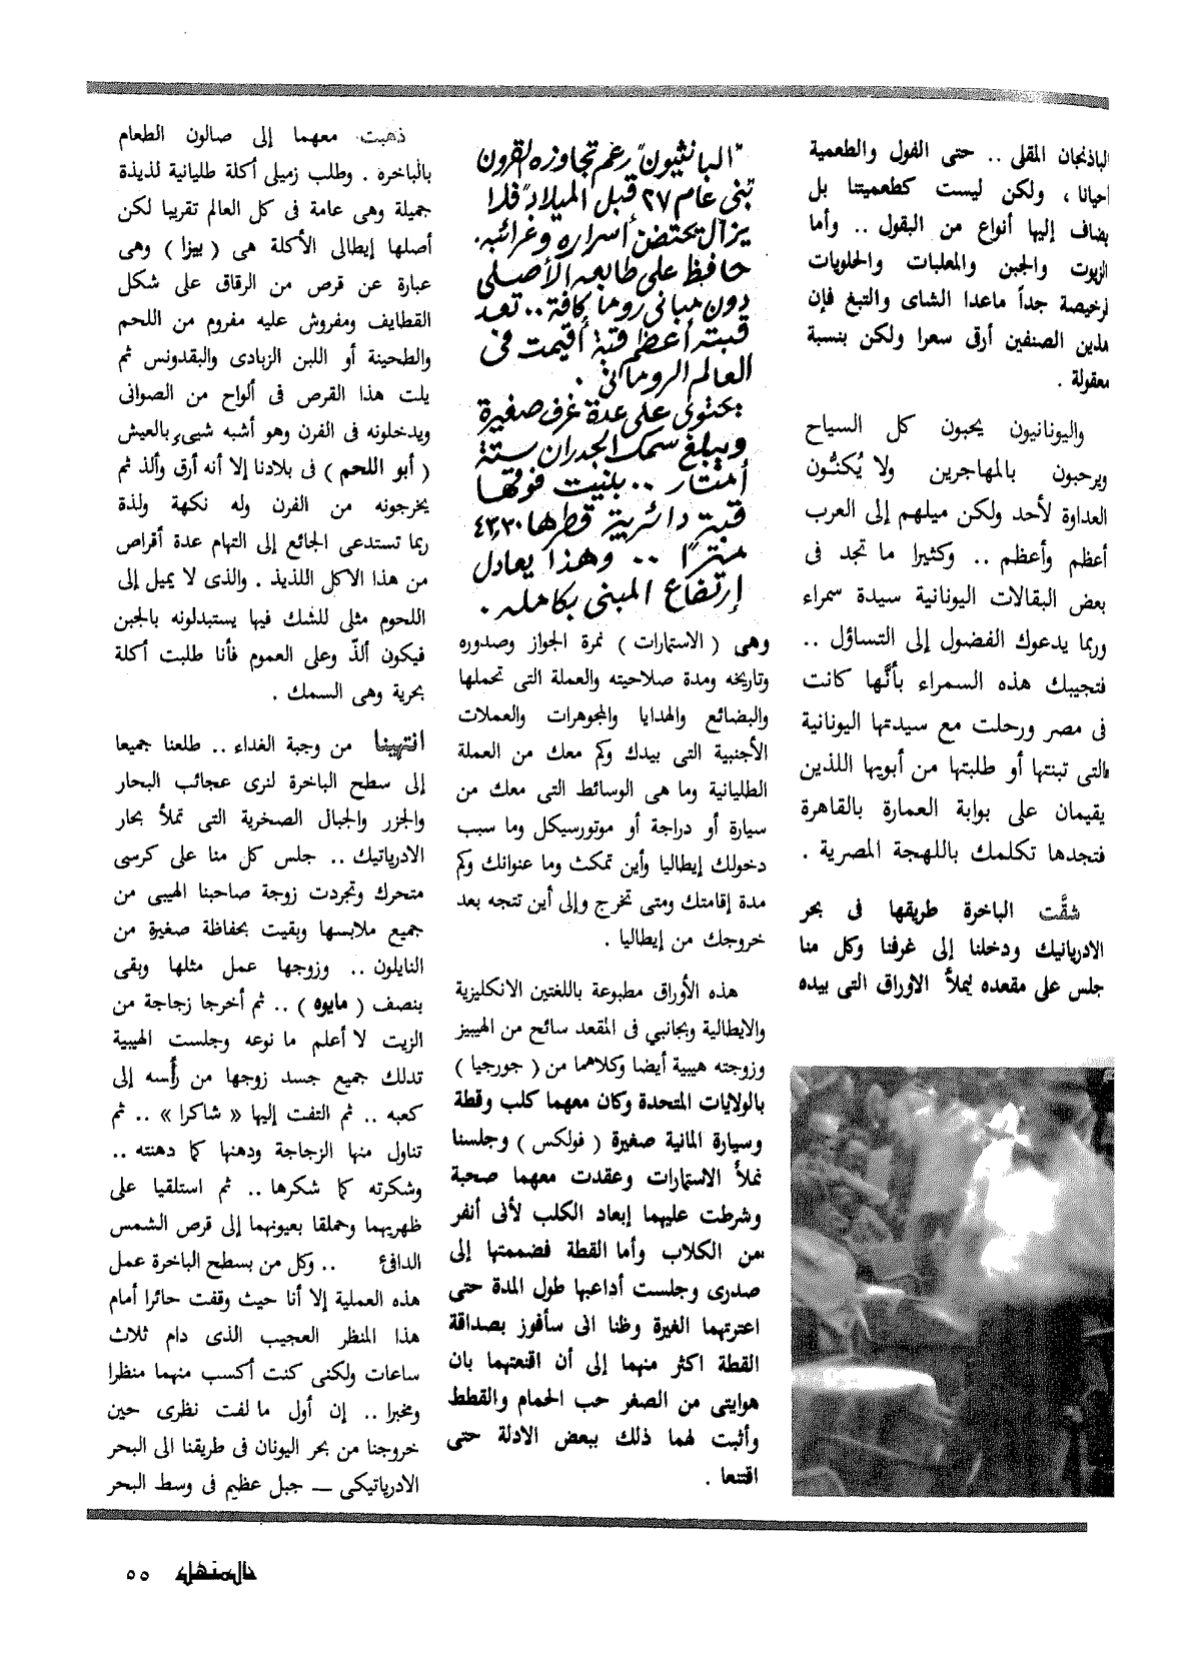 الباذنجان المقلى .. حتى الفول والطعمية
احيانا ، ولكن ليست كطعميتنا بل
يضاف إليها أنواع من البقول .. وأما
الزيوت والجبن والمعلبات والحلويات
رخيصة جداً ماعدا الشاى والتبغ فإن
هذين الصنفين أرقى سعرا ولكن بنسبة
معقولة .
واليونانيون يحبون كل السياح
ويرحبون بالمهاجرين ولا يُكنُّون
العداوة لأحد ولكن ميلهم إلى العرب
أعظم وأعظم .. وكثيرا ما تجد فى
بعض البقالات اليونانية سيدة سمراء
وربما يدعوك الفضول إلى التساؤل ..
فتجيبك هذه السمراء بأنَّها كانت
فى مصر ورحلت مع سيدتها اليونانية
التى تبنتها أو طلبتها من أبويها اللذين
يقيمان على بوابة العمارة بالقاهرة
فتجدها تكلمك باللهجة المصرية .
شقَّت الباخرة طريقها فى بحر
الادرياتيك ودخلنا إلى غرفنا وكل منا
جلس على مقعده ليملأ الاوراق التى بيده
"البانثيون" رغم تجاوزه القرون
"بنى عام ٢٧ قبل الميلاد" فلا
يزال يحتضن أسراره وغرائبه.
حافظ على طابعه الأصلى
دون مبانى روما كافة .. تعد
قبته أعظم قبة أقيمت فى
العالم الرومانى .
يحتوى على عدة غرف صغيرة
ويبلغ سمك الجدران ستة
أمتار .. بنيت فوقها
قبة دائرية قطرها ٤٣,٣٠
مترًا .. وهذا يعادل
إرتفاع المبنى بكامله .
وهى ( الاستمارات ) نمرة الجواز وصدوره
وتاريخه ومدة صلاحيته والعملة التى تحملها
والبضائع والهدايا والمجوهرات والعملات
الأجنبية التى بيدك وكم معك من العملة
الطليانية وما هى الوسائط التى معك من
سيارة أو دراجة أو موتورسيكل وما سبب
دخولك إيطاليا وأين تمكث وما عنوانك وكم
مدة إقامتك ومتى تخرج وإلى أين تتجه بعد
خروجك من إيطاليا .
هذه الأوراق مطبوعة باللغتين الانكليزية
والايطالية وبجانبي فى المقعد سائح من الهيبيز
وزوجته هيبية أيضا وكلاهما من ( جورجيا )
بالولايات المتحدة وكان معهما كلب وقطة
وسيارة المانية صغيرة ( فولكس ) وجلسنا
نملأ الاستمارات وعقدت معهما صحبة
وشرطت عليهما إبعاد الكلب لأنى أنفر
من الكلاب وأما القطة فضممتها إلى
صدرى وجلست أداعبها طول المدة حتى
اعترتهما الغيرة وظنا انى سأفوز بصداقة
القطة اكثر منهما إلى أن اقنعتهما بان
هوايتى من الصغر حب الحمام والقطط
وأثبت لهما ذلك ببعض الادلة حتى
اقتنعا .
ذهبت معهما إلى صالون الطعام
بالباخرة . وطلب زميلى أكلة طليانية لذيذة
جميلة وهى عامة فى كل العالم تقريبا لكن
أصلها إيطالى الأكلة هى ( بيزا ) وهى
عبارة عن قرص من الرقاق على شكل
القطايف ومفروش عليه مفروم من اللحم
والطحينة أو اللبن الزبادى والبقدونس ثم
يلت هذا القرص فى ألواح من الصوانى
ويدخلونه فى الفرن وهو أشبه شيىء بالعيش
( أبو اللحم ) فى بلادنا إلا أنه أرق وألذ ثم
يخرجونه من الفرن وله نكهة ولذة
ربما تستدعى الجائع إلى التهام عدة أقراص
من هذا الاكل اللذيذ . والذى لا يميل إلى
اللحوم مثلى للشك فيها يستبدلونه بالجبن
فيكون ألذّ وعلى العموم فأنا طلبت أكلة
بحرية وهى السمك .
انتهينا من وجبة الغداء .. طلعنا جميعا
إلى سطح الباخرة لنرى عجائب البحار
والجزر والجبال الصخرية التى تملأ بحار
الادرياتيك .. جلس كل منا على كرسى
متحرك وتجردت زوجة صاحبنا الهيبى من
جميع ملابسها وبقيت بحفاظة صغيرة من
النايلون .. وزوجها عمل مثلها وبقى
بنصف ( مايوه ) .. ثم أخرجا زجاجة من
الزيت لا أعلم ما نوعه وجلست الهيبية
تدلك جميع جسد زوجها من رأسه إلى
كعبه .. ثم التفت إليها « شاكرا » .. ثم
تناول منها الزجاجة ودهنها كما دهنته ..
وشكرته كما شكرها .. ثم استلقيا على
ظهريهما وحملقا بعيونهما إلى قرص الشمس
الدافئ .. وكل من بسطح الباخرة عمل
هذه العملية إلا أنا حيث وقفت حائرا أمام
هذا المنظر العجيب الذى دام ثلاث
ساعات ولكنى كنت أكسب منهما منظرا
ومخبرا .. إن أول مالفت نظرى حين
خروجنا من بحر اليونان فى طريقنا الى البحر
الادرياتيكى — جبل عظيم فى وسط البحر
المنهل ٥٥